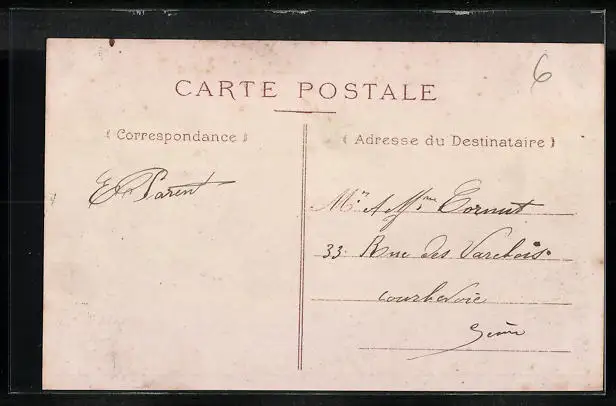 6
CARTE POSTALE
( Correspondance )
( Adresse du Destinataire )
E Parent
Mr et Mme Cornut
33 Rue des
Courbevoie
Seine